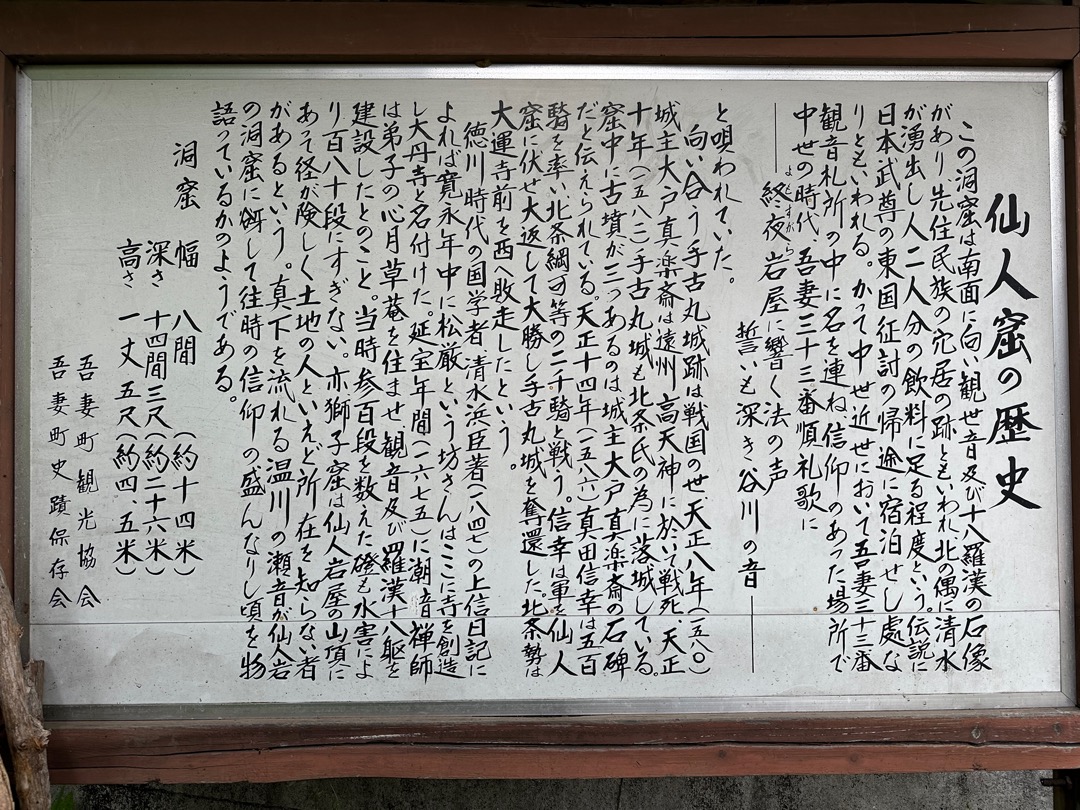 仙人窟の歴史
この洞窟は南面に向い観世音及び十八羅漢の石像
があり、先住民族の穴居の跡ともいわれ北の隅に清水
が湧出し人一二人分の飲料に足る程度という。伝説に
日本武尊の東国征討の帰途に宿泊せし処な
りともいわれる。かって中世近世において吾妻三十三番
観音札所の中に名を連ね信仰のあった場所で
中世の時代、吾妻三十三番順礼歌に
終夜岩屋に響く法の声
よもすがら
誓いも深き谷川の音
と唄われていた。
向い合う手古丸城跡は戦国の世、天正八年(一五八〇)
城主大戸真楽斎は遠州高天神に於いて戦死、天正
十年(一五八二)手古丸城も北条氏の為に落城している。
窟中に古墳が三つあるのは城主大戸真楽斎の石碑
だと伝えられている。天正十四年(一五八六)真田信幸は五百
騎を率い北条綱可等の二千騎と戦う。信幸は軍を仙人
窟に伏せ大返して大勝し手古丸城を奪還した。北条勢は
大運寺前を西へ敗走したという。
徳川時代の国学者清水浜臣著(一八四七)の上信日記に
よれば寛永年中に松厳という坊さんはここに寺を創造
し大丹寺と名付けた。延宝年間(一六七五)に潮音禅師
は弟子の心月草菴を住ませ観音及び羅漢十八躯を
建設したとのこと。当時参百段を数えた磴も水害によ
り百八十段にすぎない。亦獅子窟は仙人岩屋の山頂に
あって経が険しく土地の人といえど所在を知らない者
があるという。真下を流れる温川の瀬音が仙人岩
の洞窟に谺して往時の信仰の盛んなりし頃を物
語っているかのようである。
洞窟 幅 八間 (約十四米)
深さ 十四間三尺(約二十六米)
高さ 一丈五尺(約四・五米)
吾妻町観光協会
吾妻町史蹟保存会